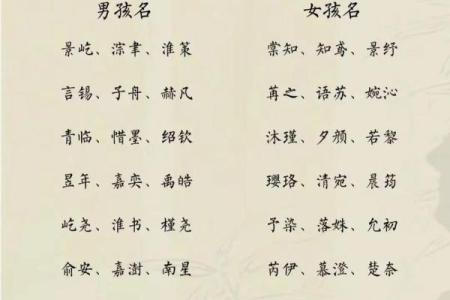 男孩名 女孩名
景屹、淙聿、淮策 棠知、知鸢、景纾
言锡、子舟、赫凡 苒之、语苏、婉沁
青临、惜墨、绍钦 沐瑾、夕颜、若黎
昱年、嘉奕、禹皓 璎珞、清宛、晨筠
屹尧、淮书、槿尧 予染、落姝、允初
俞安、嘉澍、南星 芮伊、慕澄、楚奈